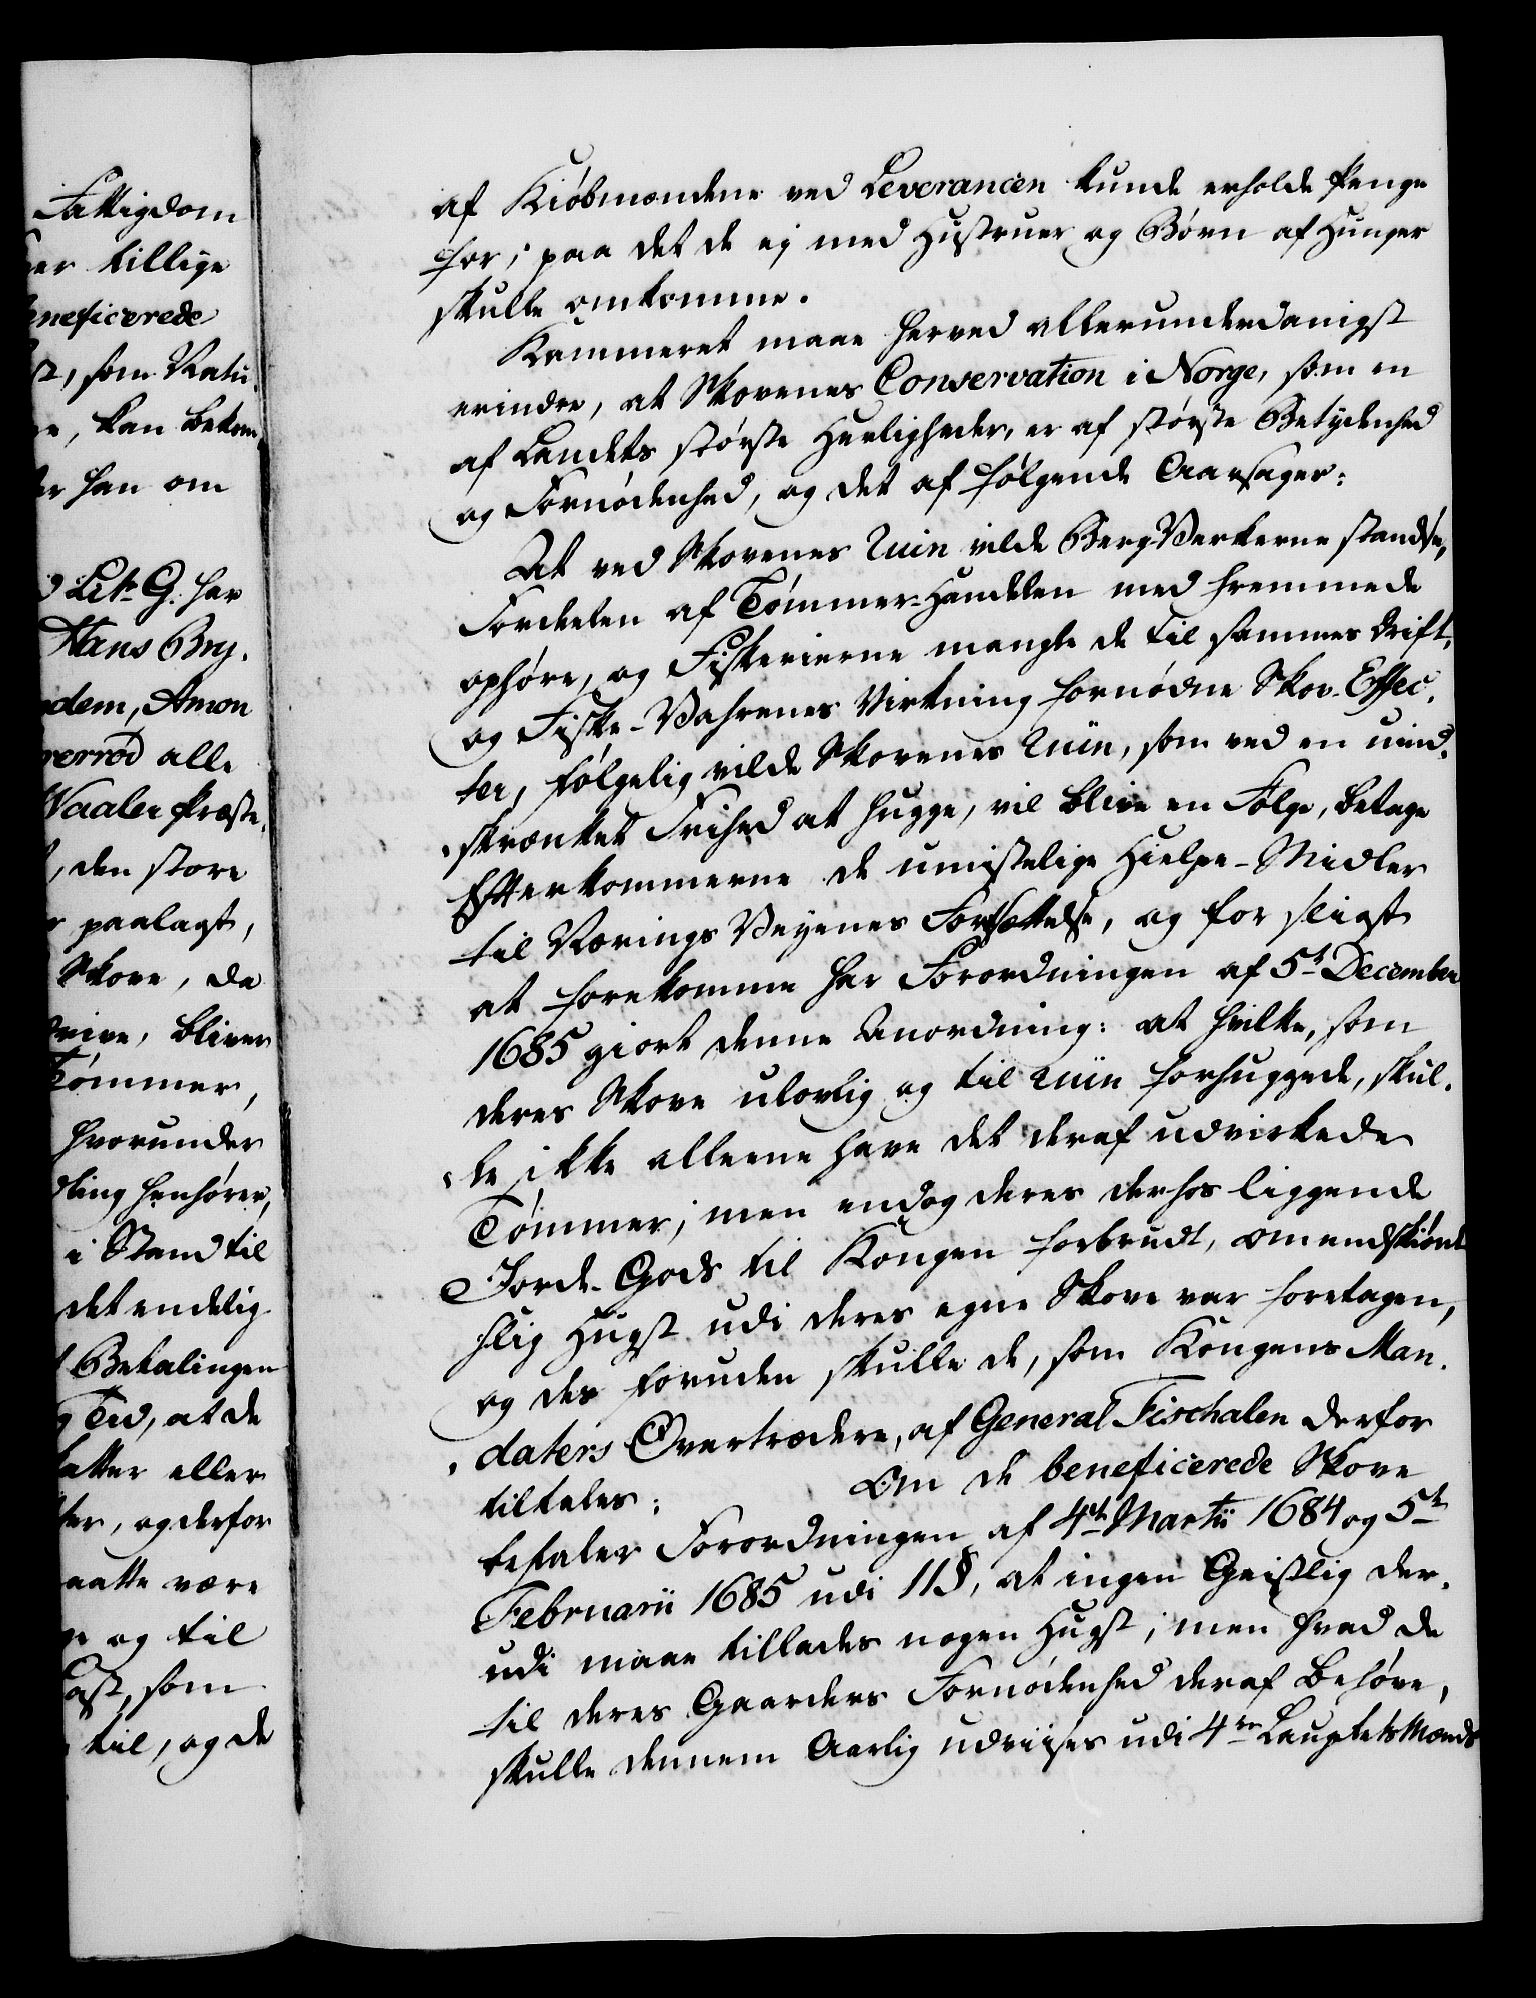 Fattigdom
er tillige
eneficerede
st, som Natu-
re, kan bekom-
er han om
d Litr. G. har
Hans Bry.
dem, Amon
verrod alle
Waaler Præste-
, den store
r paalagt,
Skove, da
drive, bliver
Tømmer,
hvorunder
dling henhører,
i Stand til
det endelig
f Betalingen
g Tid, at de
fatter eller
ter, og derfor
aatte være
ge og til
Cast, som
til, og de
af Kiøbmændene ved Leverancen kunde erholde Penge
for; paa det de ej med Hustruer og Børn af Hunger
skulle omkomme.
Kammeret maae herved allerunderdanigst
erindre, at Skovenes Conservation i Norge, som en
af Landets største Herligheder, er af største Betydenhed
og Fornødenhed, og det af følgende Aarsager:
At ved Skovenes Ruin vilde Berg-Verkerne standse,
Fordelen af Tømmer-Handelen med fremmede
ophøre, og Fiskerierne mangle de til sammes Drift,
og Fiske-Vahrenes Virkning fornødne Skov-Effec-
ter, følgelig vilde Skovenes Ruin, som ved en uind-
skrænket Frihed at hugge, vil blive en Følge, betage
Efterkommerne de umistelige Hielpe-Midler
til Nærings Veyenes Fortsættelse, og for sligt
at forekomme har Forordningen af 5t December
1685 giort denne Anordning: at hvilke, som
deres Skove ulovlig og til Ruin forhuggede, skul-
le ikke alleene have det deraf udvirkede
Tømmer; men endog deres derhos liggende
Jorde-Gods til Kongen forbrudt, omendskiønt
slig Hugst udi deres egne Skove var foretagen,
og des foruden skulle de, som Kongens Man-
daters Overtrædere, af General Fischalen derfor
tiltales: Om de beneficerede Skove
befaler Forordningen af 4de Martii 1684 og 5t
Februarii 1685 udi 11§, at ingen Geistlig der-
udi maae tillades nogen Hugst; men hvad de
til deres Gaarders Fornødenhed deraf behøve,
skulle dennem Aarlig udvises udi 4re Laugrets Mænds